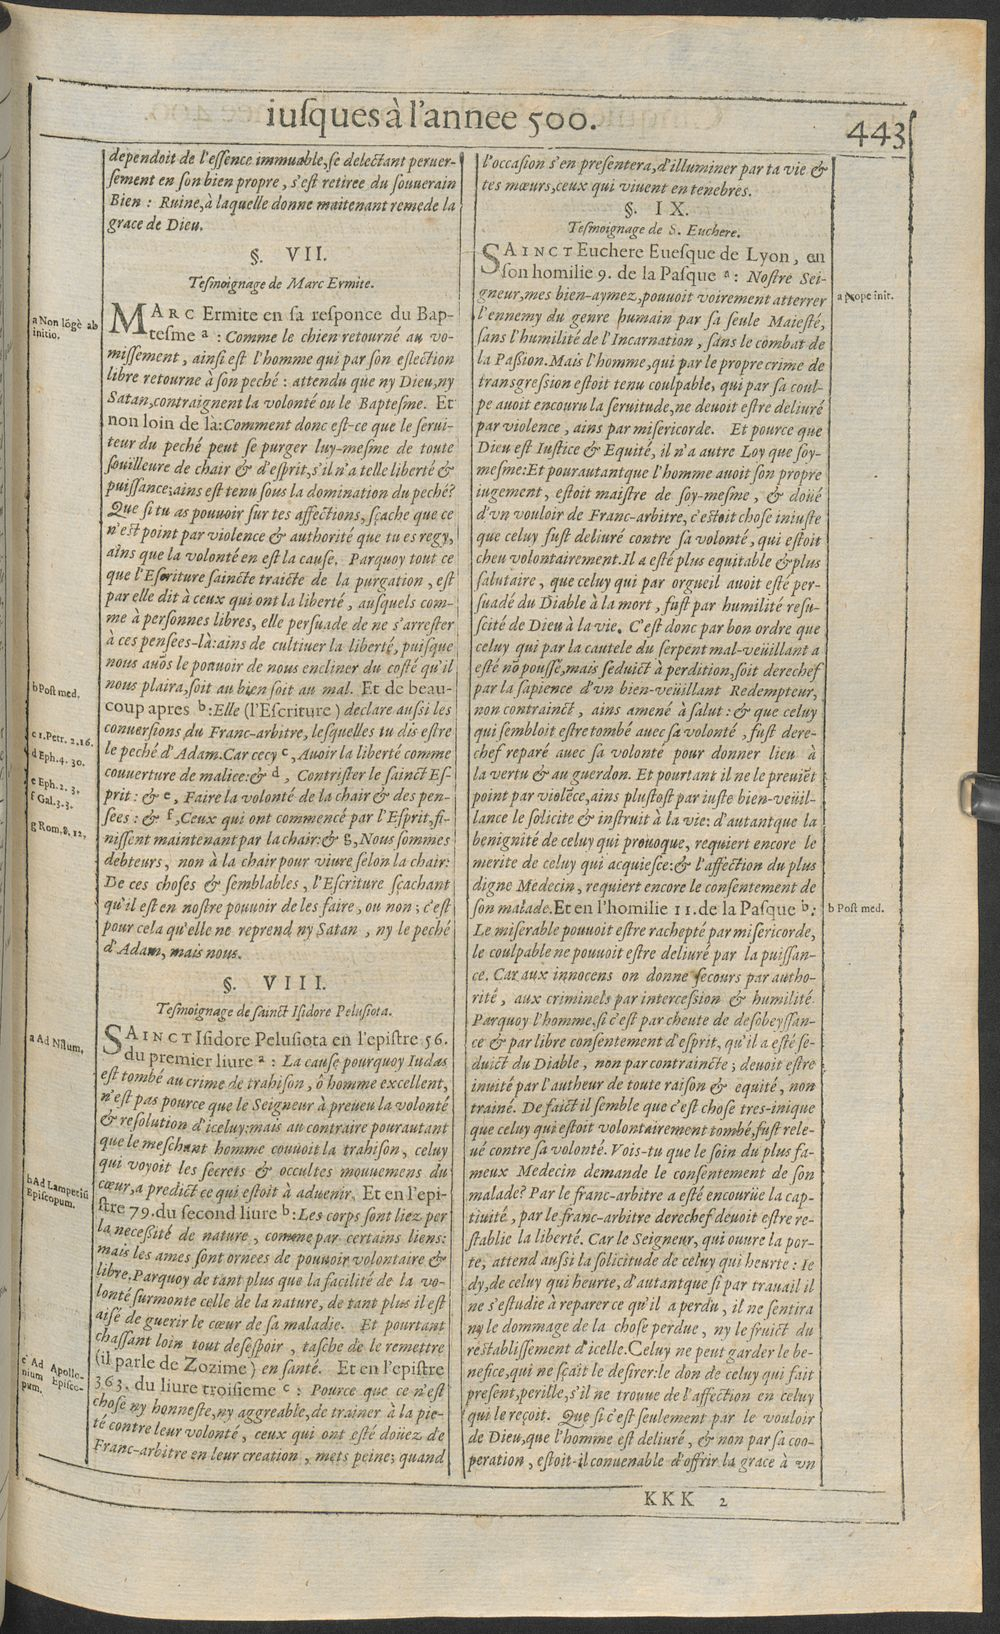 iusques à l'annee 500.
443
dependoit de l'essence immuable, se delectant peruer-
sement en son bien propre, s'est retiree du souuerain
Bien : Ruine, à laquelle donne maitenant remede la
grace de Dieu.
§. VII.
Tesmoignage de Marc Ermite.
MARC Ermite en sa responce du Bap-
tesme a : Comme le chien retourné au vo-
missement, ainsi est l'homme qui par son eslection
libre retourne à son peché : attendu que ny Dieu, ny
Satan, contraignent la volonté ou le Baptesme. Et
non loin de là: Comment donc est-ce que le serui-
teur du peché peut se purger luy-mesme de toute
souilleure de chair & d'esprit, s'il n'a telle liberté &
puissance; ains est tenu sous la domination du peché?
Que si tu as pouuoir sur tes affections, sçache que ce
n'est point par violence & authorité que tu es regy,
ains que la volonté en est la cause. Parquoy tout ce
que l'Escriture saincte traicte de la purgation, est
par elle dit à ceux qui ont la liberté, ausquels com-
me à personnes libres, elle persuade de ne s'arrester
à ces pensees-là: ains de cultiuer la liberté, puisque
nous auõs le pouuoir de nous encliner du costé qu'il
nous plaira, soit au bien soit au mal. Et de beau-
coup apres b: Elle (l'Escriture) declare aussi les
conuersions du Franc-arbitre, lesquelles tu dis estre
le peché d'Adam. Car cecy c, Auoir la liberté comme
couuerture de malice: & d, Contrister le sainct Es-
prit: & e, Faire la volonté de la chair & des pen-
sees : & f, Ceux qui ont commencé par l'Esprit, fi-
nissent maintenant par la chair: & g, Nous sommes
debteurs, non à la chair pour viure selon la chair:
De ces choses & semblables, l'Escriture sçachant
qu'il est en nostre pouuoir de les faire, ou non; c'est
pour cela qu'elle ne reprend ny Satan, ny le peché
d'Adam, mais nous.
§. VIII.
Tesmoignage de sainct Isidore Pelusiota.
SAINCT Isidore Pelusiota en l'epistre 56.
du premier liure a : La cause pourquoy Iudas
est tombé au crime de trahison, ô homme excellent,
n'est pas pource que le Seigneur à preueu la volonté
& resolution d'iceluy: mais au contraire pourautant
que le meschant homme couuoit la trahison, celuy
qui voyoit les secrets & occultes mouuemens du
cœur, a predict ce qui estoit à aduenir. Et en l'epi-
stre 79. du second liure b: Les corps sont liez per
la necessité de nature, comme par certains liens:
mais les ames sont ornees de pouuoir volontaire &
libre, Parquoy de tant plus que la facilité de la vo-
lonté surmonte celle de la nature, de tant plus il est
aisé de guerir le cœur de sa maladie. Et pourtant
chassant loin tout desespoir, tasche de le remettre
(il parle de Zozime) en santé. Et en l'epistre
363. du liure troisieme c : Pource que ce n'est
chose ny honneste, ny aggreable, de trainer à la pie-
té contre leur volonté, ceux qui ont esté doüez de
Franc-arbitre en leur creation, mets peine; quand
a Non lõgè ab
initio.
b Post med.
c 1. Petr. 2.16.
d Eph. 4. 30.
e Eph. 2. 3.
f Gal. 3.3.
g Rom. 8. 12.
a Ad Nilum.
b Ad Lampetiũ
Episcopum.
c Ad Apollo-
nium Episco-
pum.
l'occasion s'en presentera, d'illuminer par ta vie &
tes mœurs, ceux qui viuent en tenebres.
§. IX.
Tesmoignage de S. Euchere.
SAINCT Euchere Euesque de Lyon, en
son homilie 9. de la Pasque a : Nostre Sei-
gneur, mes bien-aymez, pouuoit voirement atterrer
l'ennemy du genre humain par sa seule Maiesté,
sans l'humilité de l'Incarnation, sans le combat de
la Passion. Mais l'homme, qui par le propre crime de
transgression estoit tenu coulpable, qui par sa coul-
pe auoit encouru la seruitude, ne deuoit estre deliuré
par violence, ains par misericorde. Et pource que
Dieu est Iustice & Equité, il n'a autre Loy que soy-
mesme: Et pourautant que l'homme auoit son propre
iugement, estoit maistre de soy-mesme, & doüé
d'vn vouloir de Franc-arbitre, c'estoit chose iniuste
que celuy fust deliuré contre sa volonté, qui estoit
cheu volontairement. Il a esté plus equitable & plus
salutaire, que celuy qui par orgueil auoit esté per-
suadé du Diable à la mort, fust par humilité resu-
scité de Dieu à la vie. C'est donc par bon ordre que
celuy qui par la cautele du serpent mal-veüillant a
esté nõ poussé, mais seduict à perdition, soit derechef
par la sapience d'vn bien-veüillant Redempteur,
non contrainct, ains amené à salut : & que celuy
qui sembloit estre tombé auec sa volonté, fust dere-
chef reparé auec sa volonté pour donner lieu à
la vertu & au guerdon. Et pourtant il ne le preuiẽt
point par violẽce, ains plustost par iuste bien-veüil-
lance le solicite & instruit à la vie: d'autantque la
benignité de celuy qui prouoque, requiert encore le
merite de celuy qui acquiesce: & l'affection du plus
digne Medecin, requiert encore le consentement de
son malade. Et en l'homilie 11. de la Pasque b:
Le miserable pouuoit estre rachepté par misericorde,
le coulpable ne pouuoit estre deliuré par la puissan-
ce. Car aux innocens on donne secours par autho-
rité, aux criminels par intercession & humilité.
Parquoy l'homme, si c'est par cheute de desobeyssan-
ce & par libre consentement d'esprit, qu'il a esté se-
duict du Diable, non par contraincte; deuoit estre
inuité par l'autheur de toute raison & equité, non
trainé. De faict il semble que c'est chose tres-inique
que celuy qui estoit volontairement tombé, fust rele-
ué contre sa volonté. Vois-tu que le soin du plus fa-
meux Medecin demande le consentement de son
malade? Par le franc-arbitre a esté encourüe la cap-
tiuité, par le franc-arbitre derechef deuoit estre re-
stablie la liberté. Car le Seigneur, qui ouure la por-
te, attend aussi la solicitude de celuy qui heurte : Ie
dy, de celuy qui heurte, d'autantque si par trauail il
ne s'estudie à reparer ce qu'il a perdu, il ne sentira
ny le dommage de la chose perdue, ny le fruict du
restablissement d'icelle. Celuy ne peut garder le be-
nefice, qui ne sçait le desirer: le don de celuy qui fait
present, perille, s'il ne trouue de l'affection en celuy
qui le reçoit. Que si c'est seulement par le vouloir
de Dieu, que l'homme est deliuré, & non par sa coo-
peration, estoit-il conuenable d'offrir la grace à vn
a Prope init.
b Post med.
KKK 2